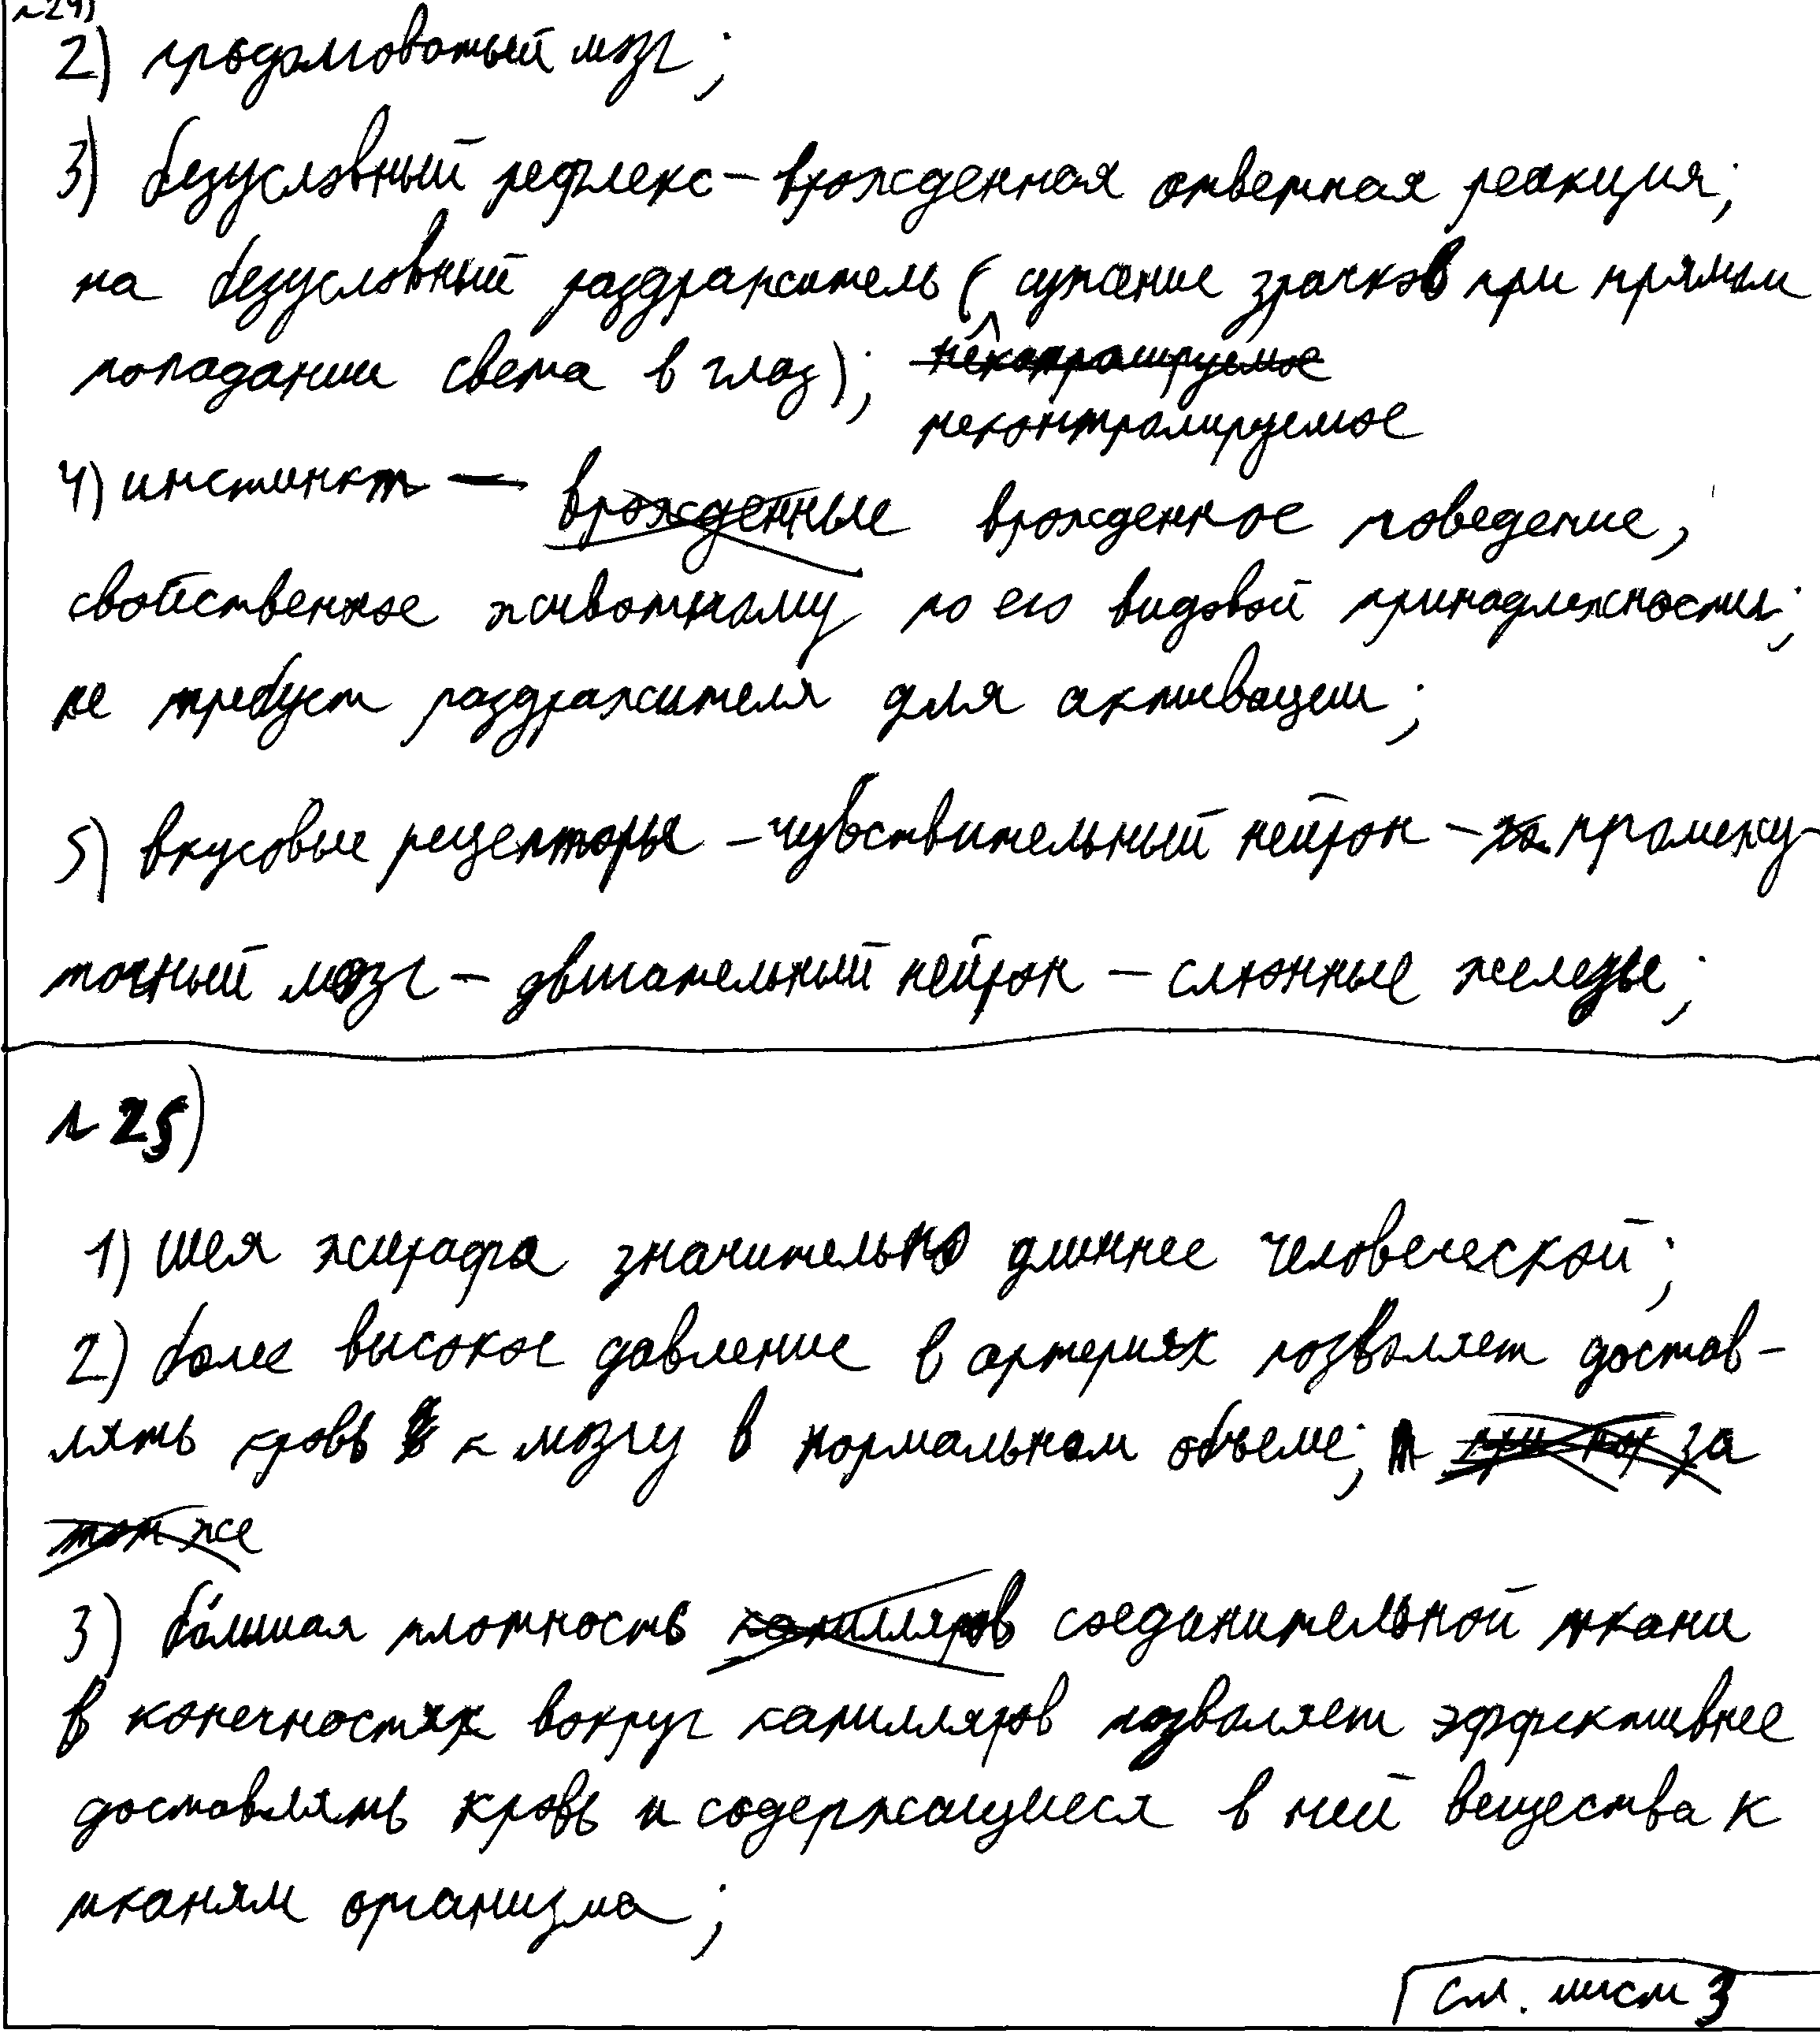 №24)
2) продолговатый мозг;
3) безусловный рефлекс – врожденная ответная реакция;
на безусловный раздражитель (сужение зрачков при прямом
попадании света в глаз); неконтролируемое
неконтролируемое
4) инстинкт — врожденные врожденное поведение,
свойственное животному по его видовой принадлежности;
не требует раздражителя для активации;
5) вкусовые рецепторы – чувствительный нейрон – промежу-
точный мозг – двигательный нейрон – слюнные железы;
№25)
1) шея жирафа значительно длиннее человеческой;
2) более высокое давление в артериях позволяет достав-
лять кровь к мозгу в нормальном объеме; за
том же
3) бо́льшая плотность капилляров соединительной ткани
в конечностях вокруг капилляров позволяет эффективнее
доставлять кровь и содержащиеся в ней вещества к
тканям организма;
см. лист 3